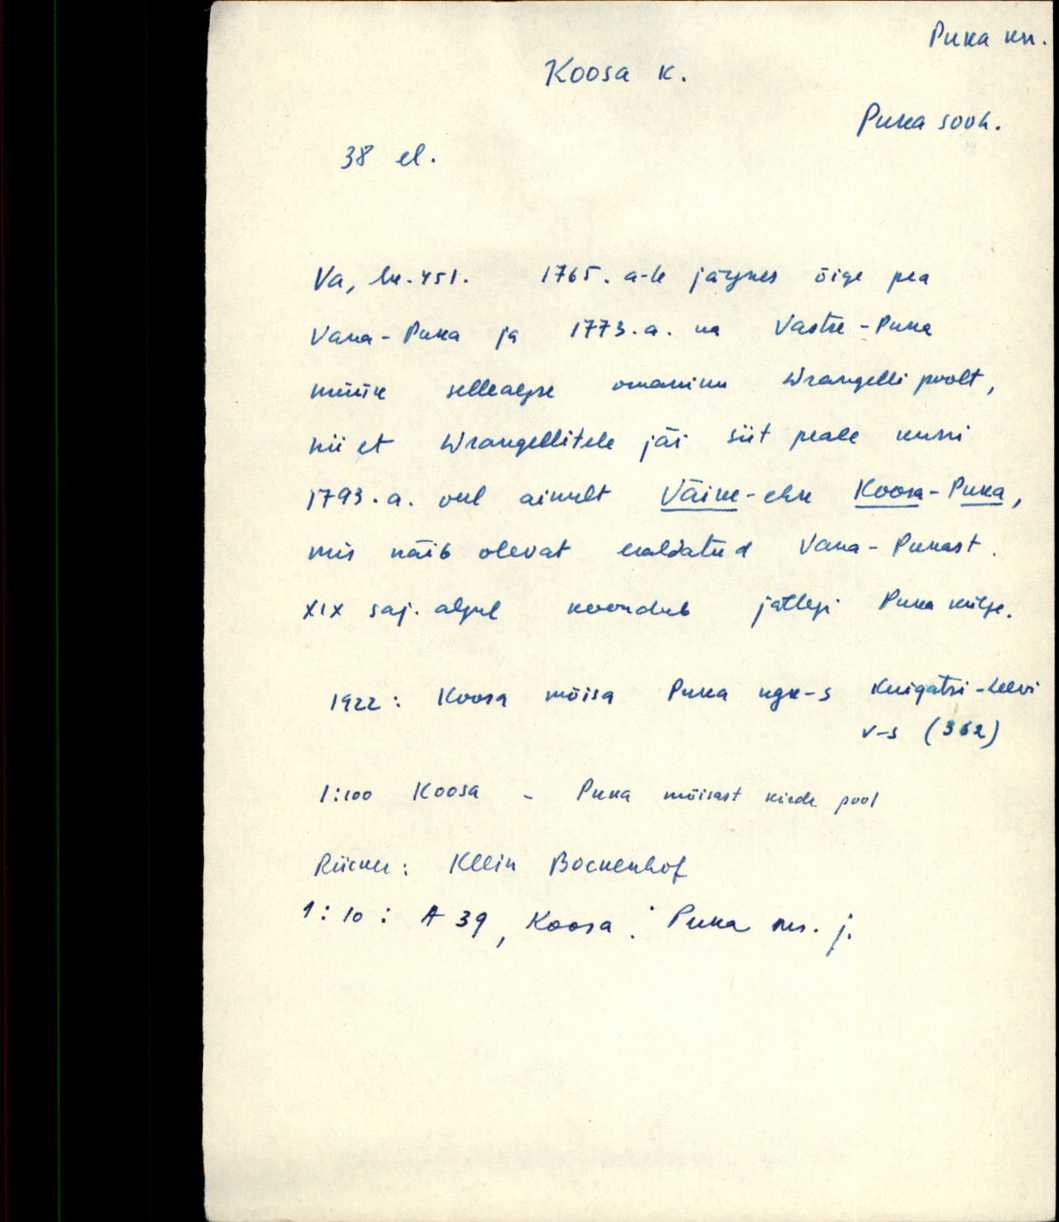 Puka kn.
Koosa k.
Puka sovh.
38 el.
Va, lk. 451. 1765. a-le järgnes õige pea
Vana-Puka ja 1773. a. ka Vastse-Puka
müük selleaegse omaniku Wrangelli poolt,
nii et Wrangellitele jäi siit peale kuni
1793. a. veel ainult Väike- ehk Koosa-Puka,
mis näib olevat eraldatud Vana-Pukast.
XIX saj. algul koondub jällegi Puka külge.
1922: Koosa mõisa Puka ngk-s Kuigatsi-Leevi
v-s (362)
1:100 Koosa - Puka mõisast kirde pool
Rücker: Klein Bockenhof
1:10: A 39, Koosa: Puka j.